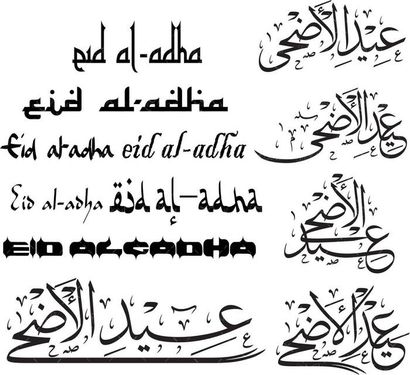 eid al-adha
عيد الأضحى
eid al-adha
عيد الأضحى
Eid al-adha eid al-adha
Eid al-adha eid al-adha
عيد الأضحى
EID AL-ADHA
عيد الأضحى
عيد الأضحى